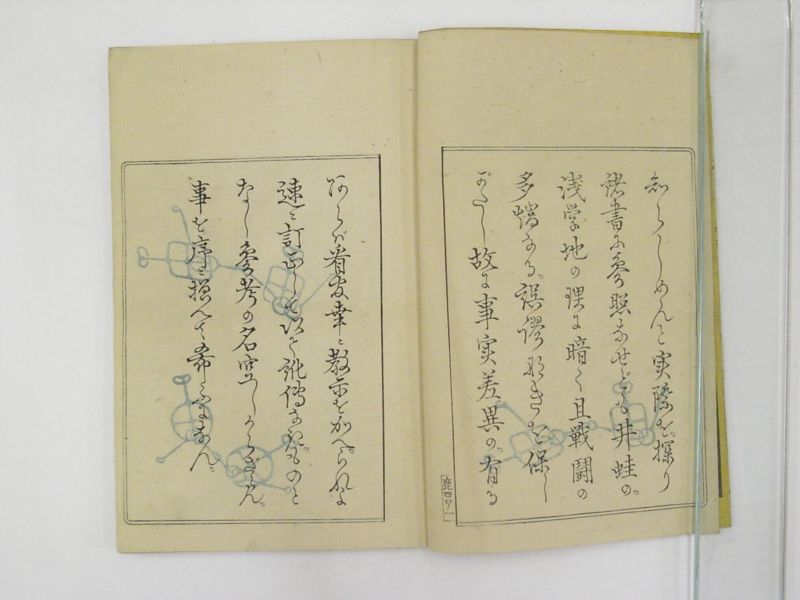 知らしめんと実際を探り
諸書に参照なせども井蛙の。
浅学地の理に暗く且戦闘の
多端なる。誤謬なきを保し
がたし故に事実差異の。有る
あらば看官幸に教示を加へられよ
速に訂正して
なし参考の名空しからざらん。
事を序に換へて希ふになん。
鹿四ノ一